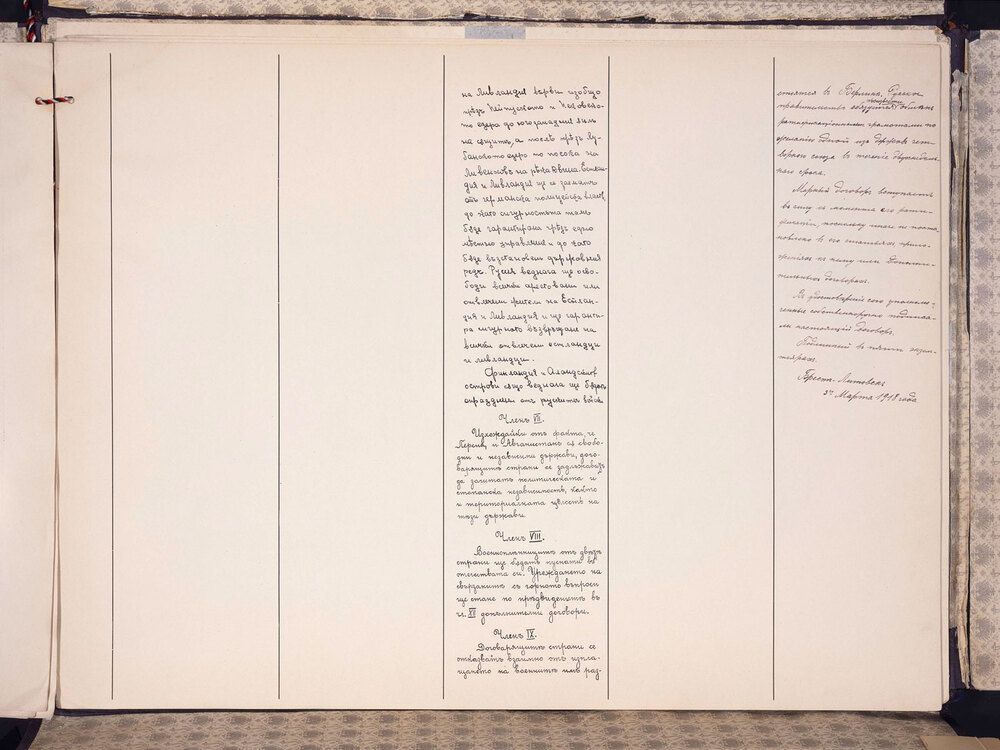 на Ливландия върви изобщо
прѣзъ Пейпуското и Псковско-
то езера до югозападния имъ
на сѫщитѣ, а послѣ прѣзъ Лу-
банското езеро по посока на
Ливенхофъ на рѣка Двина. Естлан-
дия и Ливландия ще се заематъ
отъ германска полицейска власть,
до като сигурностьта тамъ
бѫде гарантирана чрѣзъ едно
мѣстно управление и до като
бѫде възстановенъ държавния
редъ. Русия веднага ще осво-
боди всички арестовани или
отвлечени жители на Естлан-
дия и Ливландия и ще гаранти-
ра сигурното възвръщане на
всички отвлечени естландци
и ливландци.
Финландия и Аландскитѣ
острови сѫщо веднага ще бѫдатъ
опразднени отъ рускитѣ войски
Членъ VII.
Изхождайки отъ факта, че
Персия и Авганистанъ сѫ свобо-
дни и независими държави, дого-
варящитѣ страни се задължаватъ
да зачитатъ политическата и
стопанска независимость, както
и териториалната цѣлость на
тѣзи държави.
Членъ VIII.
Военнопленницитѣ отъ двѣтѣ
страни ще бѫдатъ пуснати въ
отечествата си. Уреждането на
свързанитѣ съ горното въпроси
ще стане по прѣдвиденитѣ въ
чл. XII допълнителни договори.
Членъ IX.
Договарящитѣ страни се
отказватъ взаимно отъ изпла-
щането на военнитѣ имъ раз-
стоятся в Берлине. Русское
правительство обязуется обменяться
ратификационными грамотами по
желанию одной из держав чет-
верного союза в течение двухнедель-
ного срока.
Мирный договор вступает
в силу с момента его рати-
фикации, поскольку иное не поста-
новлено в его статьях, прило-
жениях к нему или дополни-
тельных договорах.
В удостоверение сего уполномо-
ченные собственноручно подписа-
ли настоящий договор.
Подлинный в пяти экзем-
плярах.
Брест-Литовск
3го Марта 1918 года